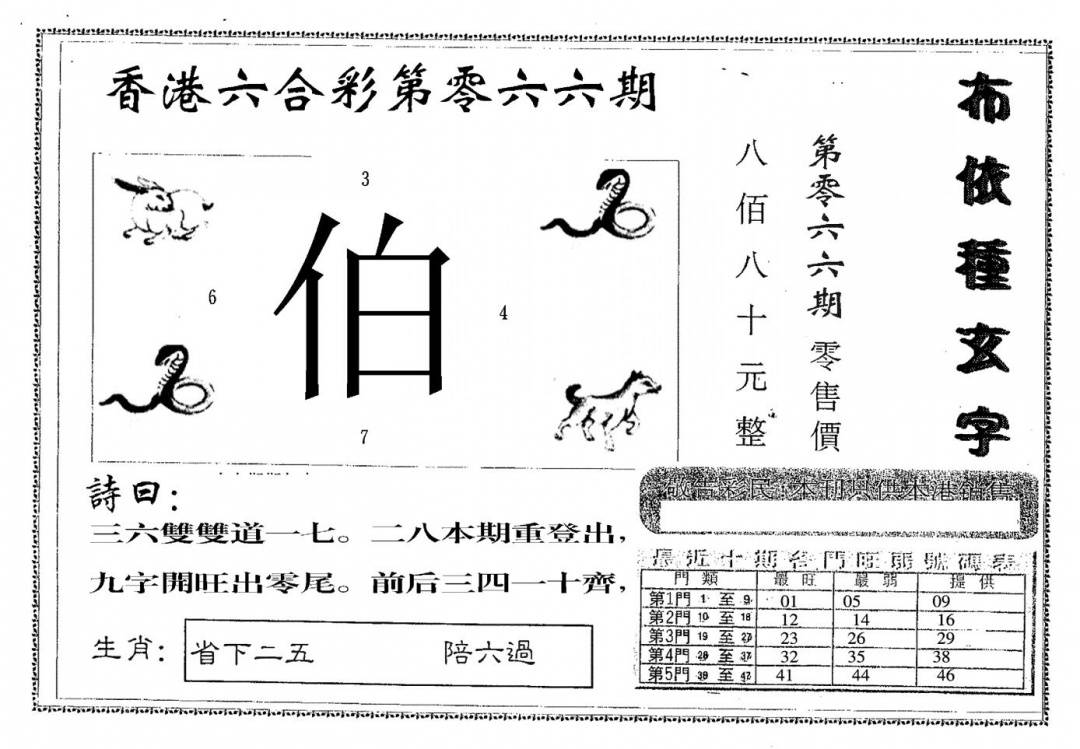 香港六合彩第零六六期
布依種玄字
第零六六期零售價
八佰八十元整
3
6
伯
4
7
詩曰:
三六雙雙道一七。二八本期重登出,
九字開旺出零尾。前后三四一十齊,
生肖: 省下二五 陪六過
敬告彩民:本刊只供本港銷售
最近十期各門旺弱號碼表
門類 最旺 最弱 提供
第1門 1 至 9 01 05 09
第2門 10 至 18 12 14 16
第3門 19 至 27 23 26 29
第4門 28 至 37 32 35 38
第5門 38 至 47 41 44 46